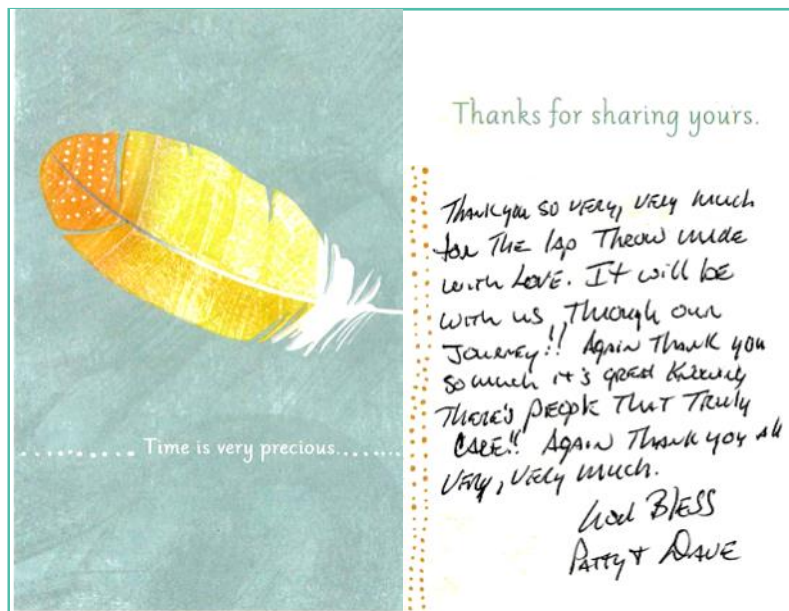 Time is very precious.........
Thanks for sharing yours.
Thank you so very, very much
for the lap throw made
with love. It will be
with us through our
journey!! Again thank you
so much it's great knowing
there's people that truly
care!! Again thank you all
very, very much.
God Bless
Patty & Dave